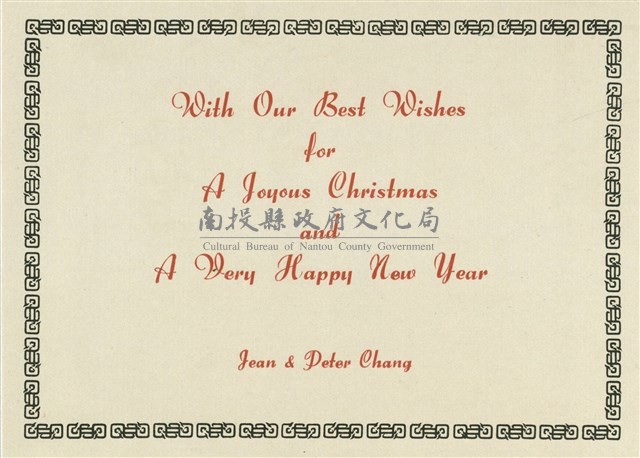 With Our Best Wishes
for
A Joyous Christmas
南投縣政府文化局
and
Cultural Bureau of Nantou County Government
A Very Happy New Year
Jean & Peter Chang